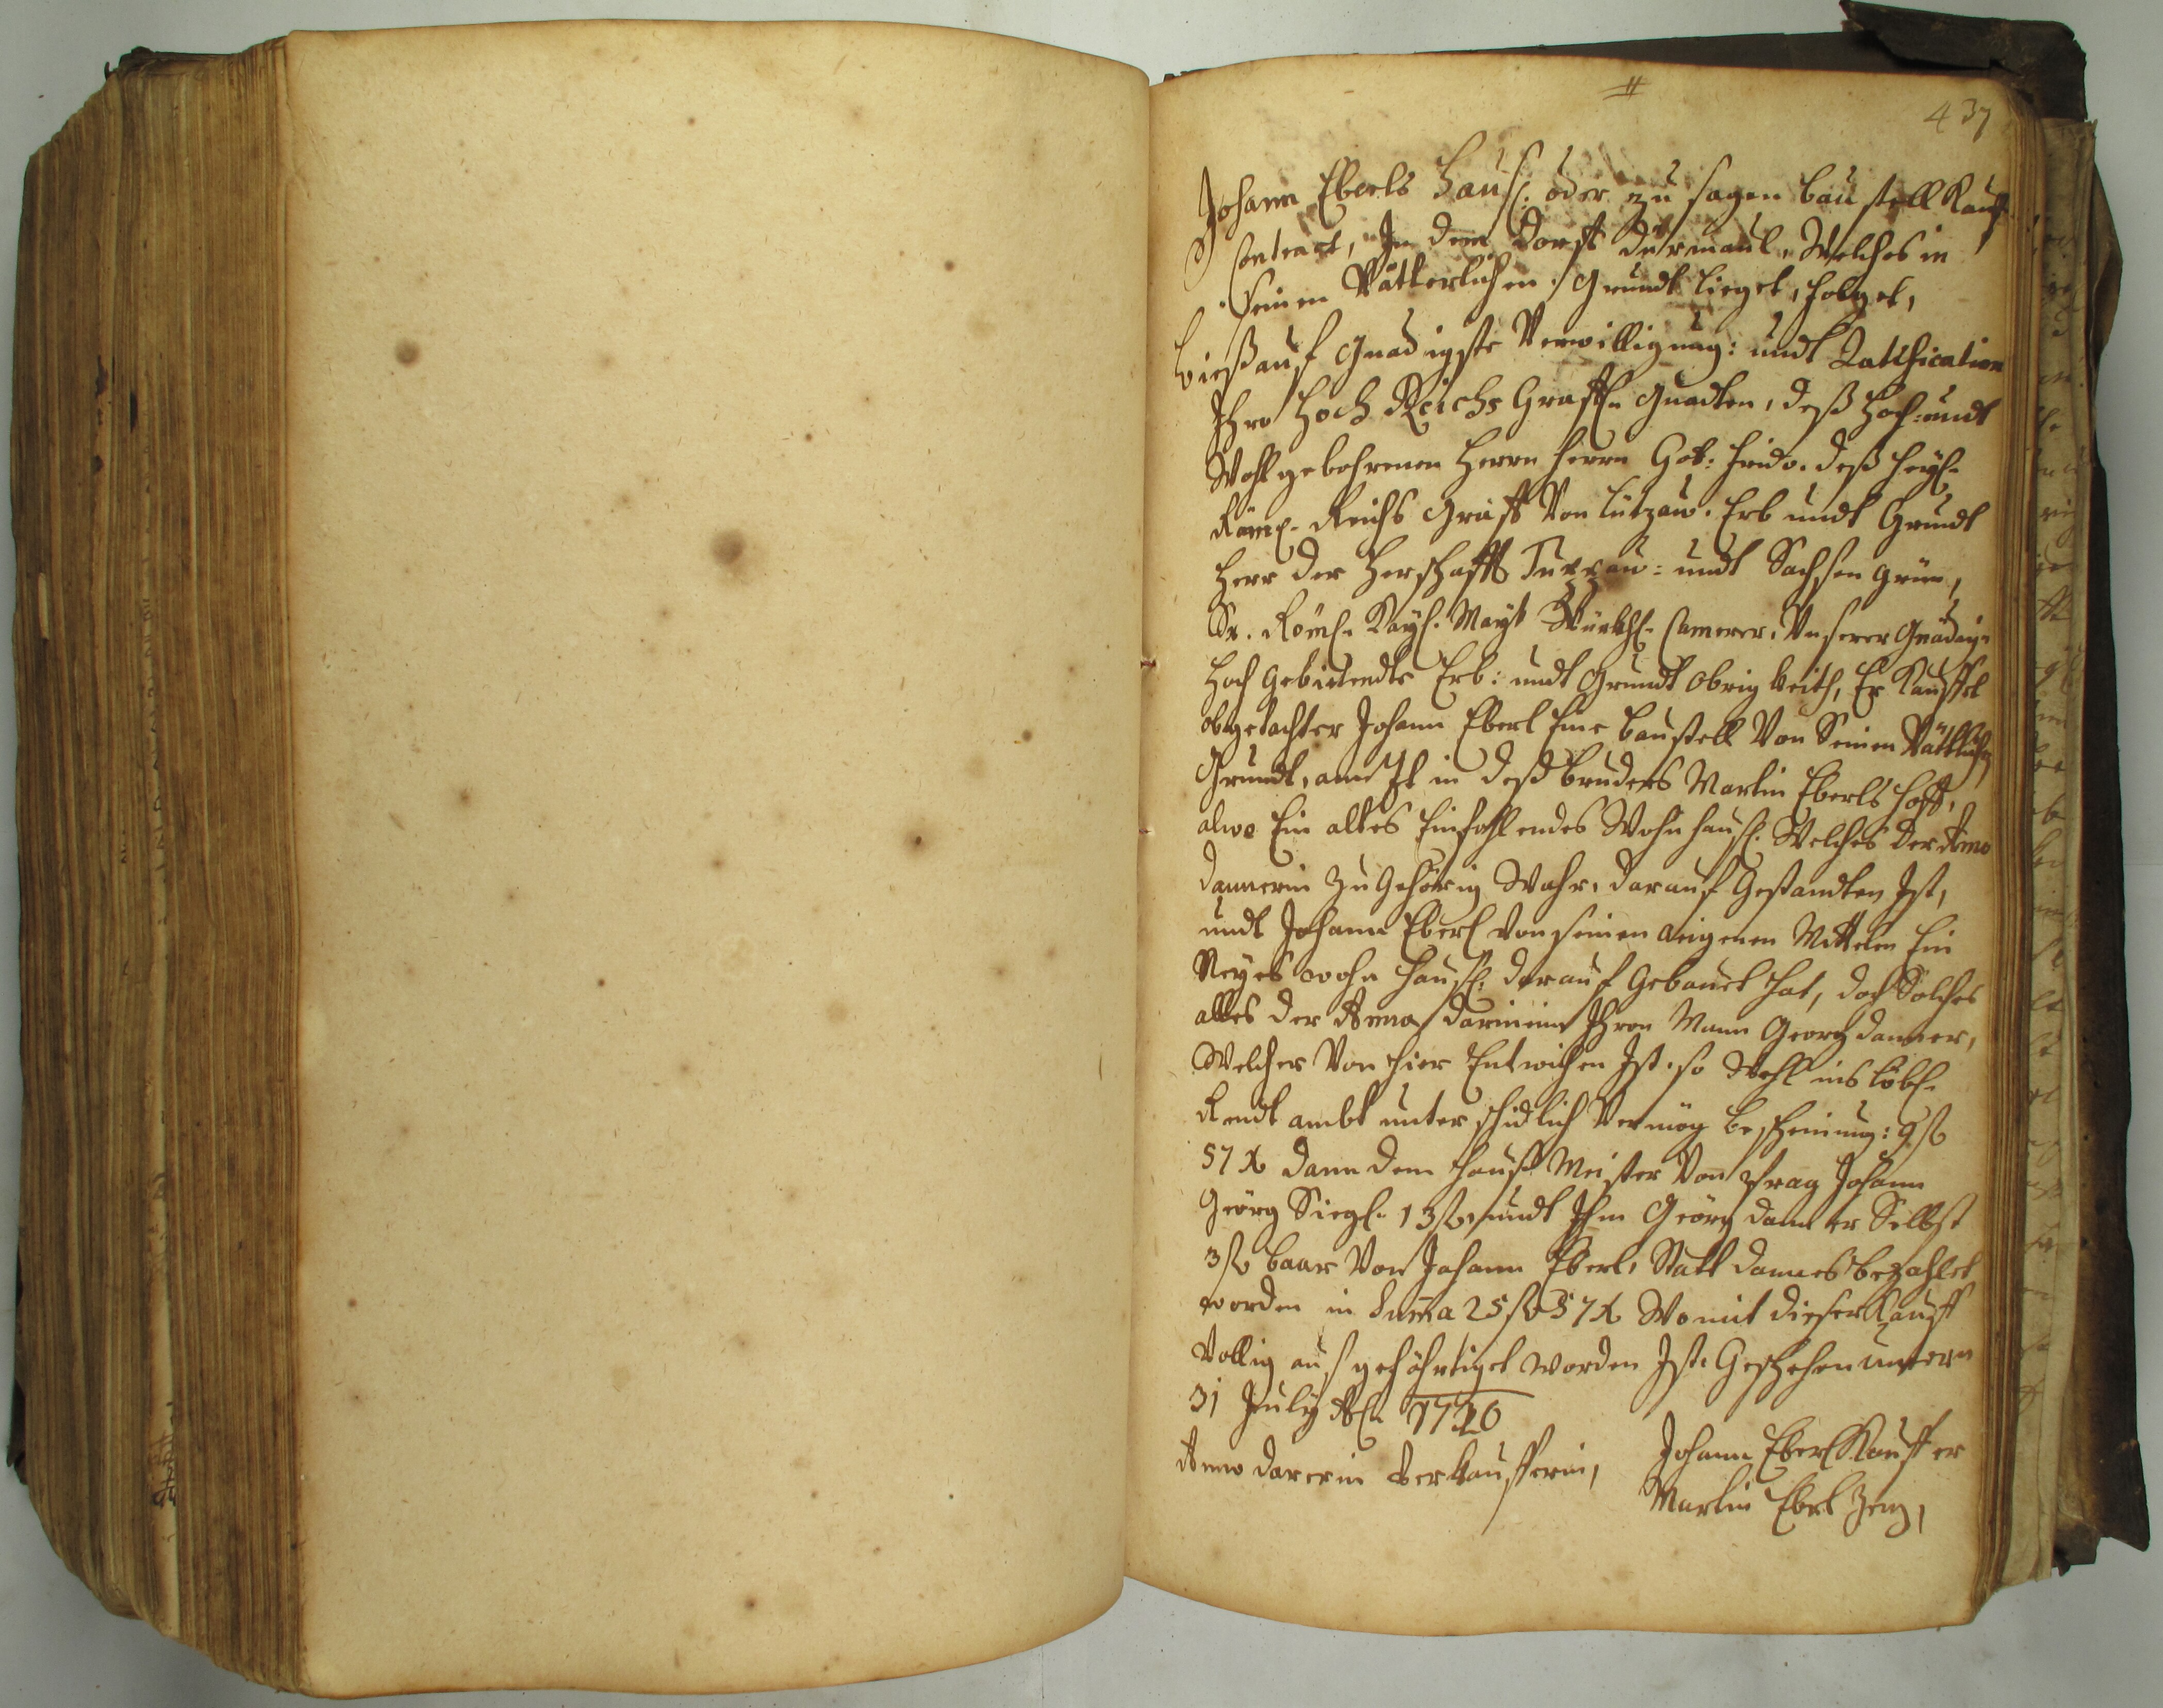 437
Johann Eberls Hauß: oder zu sagen bau stell Kauff
Contract, In dem Dorff Dürmaul, Welches in
seinen Vätterlichen Grundt lieget, folget,
Bieß auf Gnädigste Verwilligung: undt Ratification
Ihro Hoch Reichs Graffl: Gnadten, deß Hoch: undt
Wohlgebohrenen Herrn Herrn Got: Frid. deß Heyl:
Röm: Reichs Graff Von Lützaw. Erb undt Grundt
Herr der Herschafft Tuppau: undt Sachsen grün,
Sr. Röm: Kayl: Mayt Würckhl: Camerer, Unserer Gnädig:
Hoch Gebietendte Erb: undt Grundt Obrigkeith, Er Kauffet
obgedachter Johann Eberl Eine baustell Von Seinen Vätterlichen
Grundt, in deß bruders Martin Eberls Hoff,
alwo Ein altes Einfahlendes Wohn hauß: Welches der Anna
Dannerin zu Gehörig Wahr, darauf Gestandten Ist,
undt Johann Eberl von seinen aigenen Mittelen Ein
Neyes wohn Hauß: darauf Gebauet hat, doch Solches
alles der Anna Ihren Mann Georg Danner,
Welcher Von hier Entwichen Ist. so Wohl ins löbl:
Rendt ambt unterschidlich Vermög bescheinung: 9 fl
57 x dann dem Hauß Meister Von Prag Johann
Georg Siegl: 13 fl, undt Ihm Georg Danner Selbst
3 fl baar Von Johann Eberl, Statt Dannes bezahlet
worden in Suma 25 fl 57 x Womit dieser Kauff
Vollig auß gefährtiget worden Ist. Geschehen untern
31 July A: 1720
Anna Darerin Verkaufferin,
Johann Eberl Kauffer
Martin Eberl Zeug,